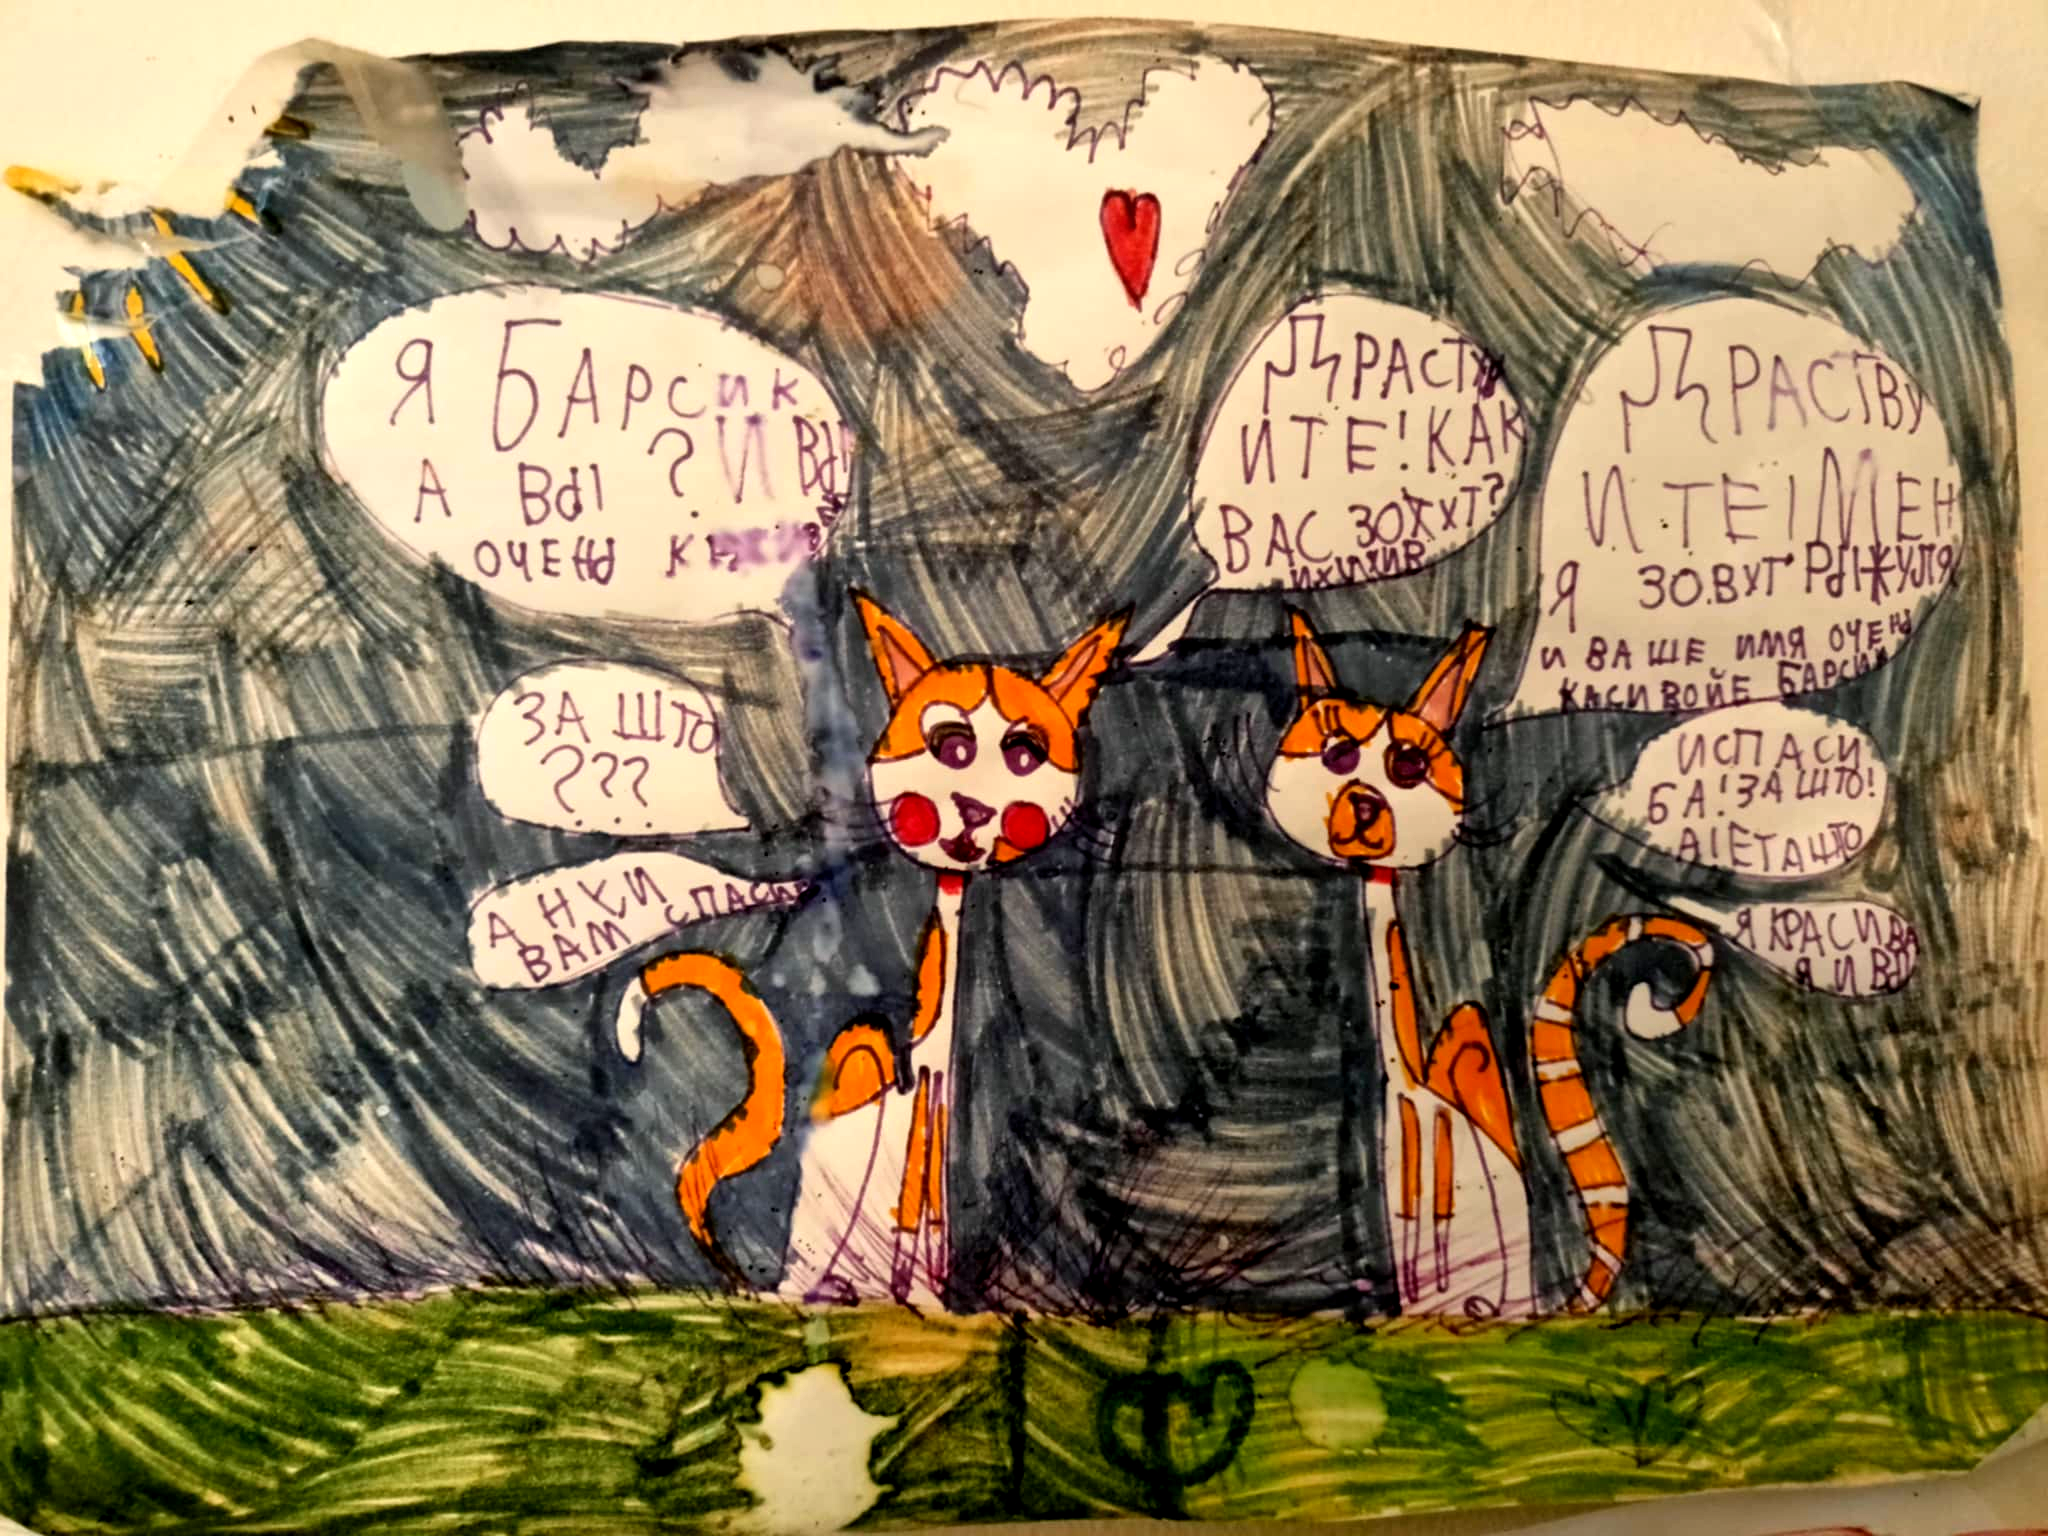 Я БАРСИК
А ВЫ ? И ВЫ
ОЧЕНЬ
ДРАСТУ
ИТЕ! КАК
ВАС ЗОХУТ?
ДРАСТВУ
ИТЕ! МЕН
Я ЗОВУТ РЫЖУЛЯ
И ВАШЕ ИМЯ ОЧЕНЬ
КАСИВОЙЕ БАРСИК
ЗА ШТО
???
ИСПАСИ
БА! ЗА ШТО!
А! ЕТА ШТО
А НУ И
ВАМ СПАСИБ
Я КРАСИВА
Я И ВЫ